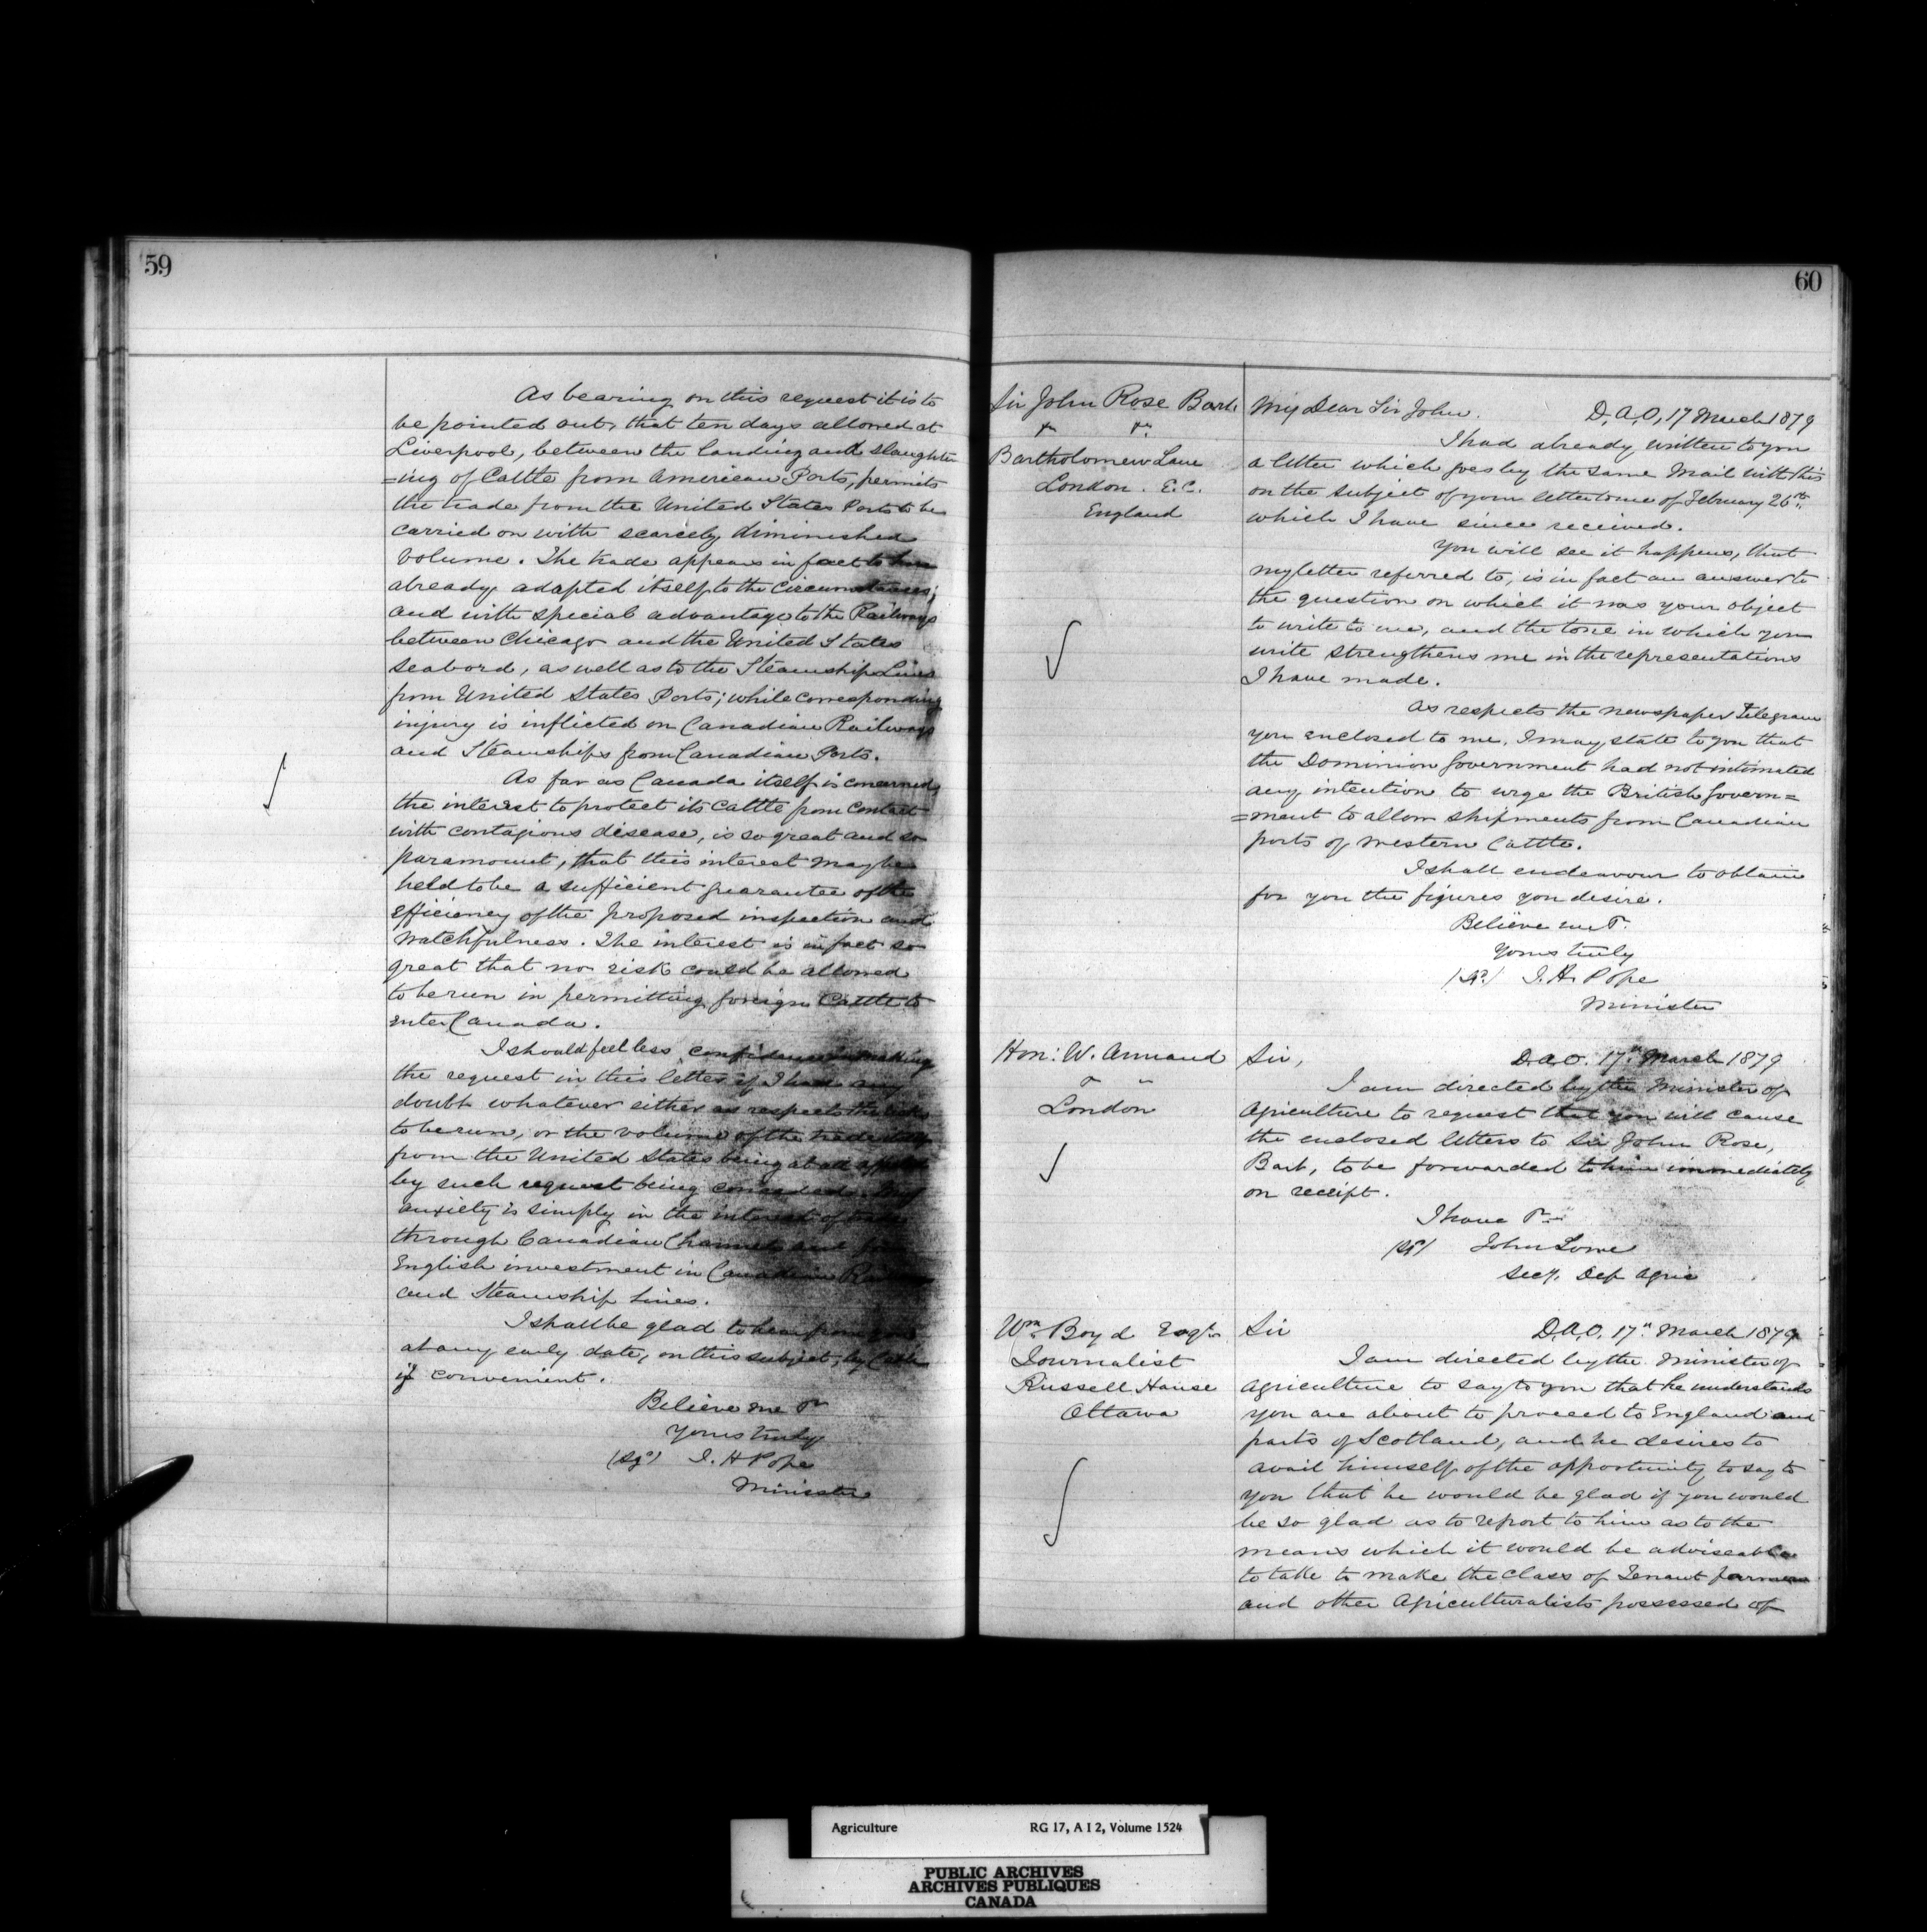 59
As bearing on this request it is to
be pointed out, that ten days allowed at
Liverpool, between the landing and slaughter
=ing of Cattle from American Ports, permits
the trade from the United States Ports to be
carried on with scarcely diminished
volume. The trade appears in fact to have
already adapted itself to the circumstances;
and with special advantage to the Railways
between Chicago and the United States
seabord, as well as to the Steamship Lines
from United States Ports; while corresponding
injury is inflicted on Canadian Railways
and Steamships from Canadian Ports.
As far as Canada itself is concerned,
the interest to protect its cattle from contact
with contagious disease, is so great and so
paramount, that this interest may be
held to be a sufficient guarantee of the
efficiency of the proposed inspection and
watchfulness. The interest is in fact so
great that no risk could be allowed
to be run in permitting foreign Cattle to
enter Canada.
I should feel less confidence in making
the request in this letter if I had any
doubt whatever either as respects the risks
to be run, or the volume of the trade
from the United States being at all affected
by such request being conceded. My
anxiety is simply in the interest of trade
through Canadian Channels and
English investment in Canadian Railways
and Steamship Lines.
I shall be glad to hear from you
at any early date, on this subject, by Cable
if convenient.
Believe me &
Yours truly
(Sgd) J. H Pope
Minister
60
Sir John Rose Bart
Bartholomew Lane
London. E.C.
England
My Dear Sir John. D.A.O, 17 March 1879
I had already written to you
a letter which goes by the same Mail with this
on the subject of your letter to me of February 26th
which I have since received.
You will see it happens, that
my letter referred to, is in fact an answer to
the question on which it was your object
to write to me, and the tone in which you
write strengthens me in the representations
I have made.
As respects the newspaper telegram
you enclosed to me, I may state to you that
the Dominion Government had not intimated
any intention to urge the British Govern=
=ment to allow shipments from Canadian
ports of western Cattle.
I shall endeavour to obtain
for you the figures you desire.
Believe me &.
Yours truly
(Sgd) J. H. Pope
Minister
Hon: W. Annand
London
Sir, D.A.O. 17th March 1879
I am directed by the Minister of
Agriculture to request that you will cause
the enclosed letters to Sir John Rose,
Bart, to be forwarded to him immediately
on receipt.
I have &
(Sgd) John Lowe
Secy. Dep Agric
Wm Boyd Esqr
Journalist
Russell House
Ottawa
Sir D.A.O. 17th March 1879
I am directed by the Minister of
Agriculture to say to you that he understands
you are about to proceed to England and
parts of Scotland, and he desires to
avail himself of the opportunity to say to
you that he would be glad if you would
be so glad as to report to him as to the
means which it would be adviseable
to take to make the class of Tenant farmers
and other Agriculturalists possessed of
Agriculture RG 17, A I 2, Volume 1524
PUBLIC ARCHIVES
ARCHIVES PUBLIQUES
CANADA